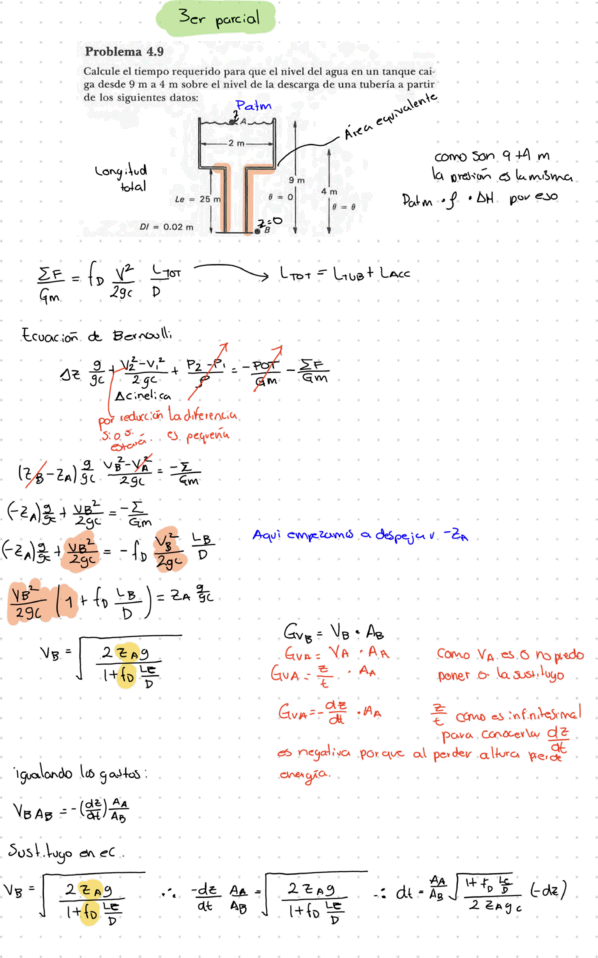 3er parcial
Problema 4.9
Calcule el tiempo requerido para que el nivel del agua en un tanque cai-
ga desde 9 m a 4 m sobre el nivel de la descarga de una tubería a partir
de los siguientes datos:
Patm
2
A
Área equivalente
2 m
Longitud
total
Le = 25 m
9 m
θ = 0
4 m
θ = θ
DI = 0.02 m
z=0
B
como son 9 y 4 m
la presión es la misma
Patm · ρ · ΔH por eso
ΣF/Gm = fD V²/2gc LTOT/D → LTOT = LTUB + LACC
Ecuación de Bernoulli
Δz g/gc + V2²-V1²/2gc + P2-P1/ρ = -POT/Gm - ΣF/Gm
Δcinética
por reducción la diferencia
es pequeña
(zB - zA) g/gc VB²-VA²/2gc = -Σ/Gm
(-zA) g/gc + VB²/2gc = -Σ/Gm
(-zA) g/gc + VB²/2gc = -fD VB²/2gc LB/D
Aquí empezamos a despejar -ZA
VB²/2gc (1 + fD LB/D) = ZA g/gc
VB = √(2 ZA g / 1+fD LE/D)
GVB = VB · AB
GVA = VA · AA
GVA = z/t · AA
Como VA es 0 no puedo
poner 0 la sustituyo
GVA = - dz/dt · AA
z/t como es infinitesimal
para conocerla dz/dt
es negativa porque al perder altura pierde
energía.
igualando los gastos:
VB AB = -(dz/dt) AA/AB
Sustituyo en ec.
VB = √(2 ZA g / 1+fD LE/D) ∴ -dz/dt AA/AB = √(2 ZA g / 1+fD LE/D) ∴ dt = AA/AB √(1+fD LE/D / 2 ZA gc) (-dz)